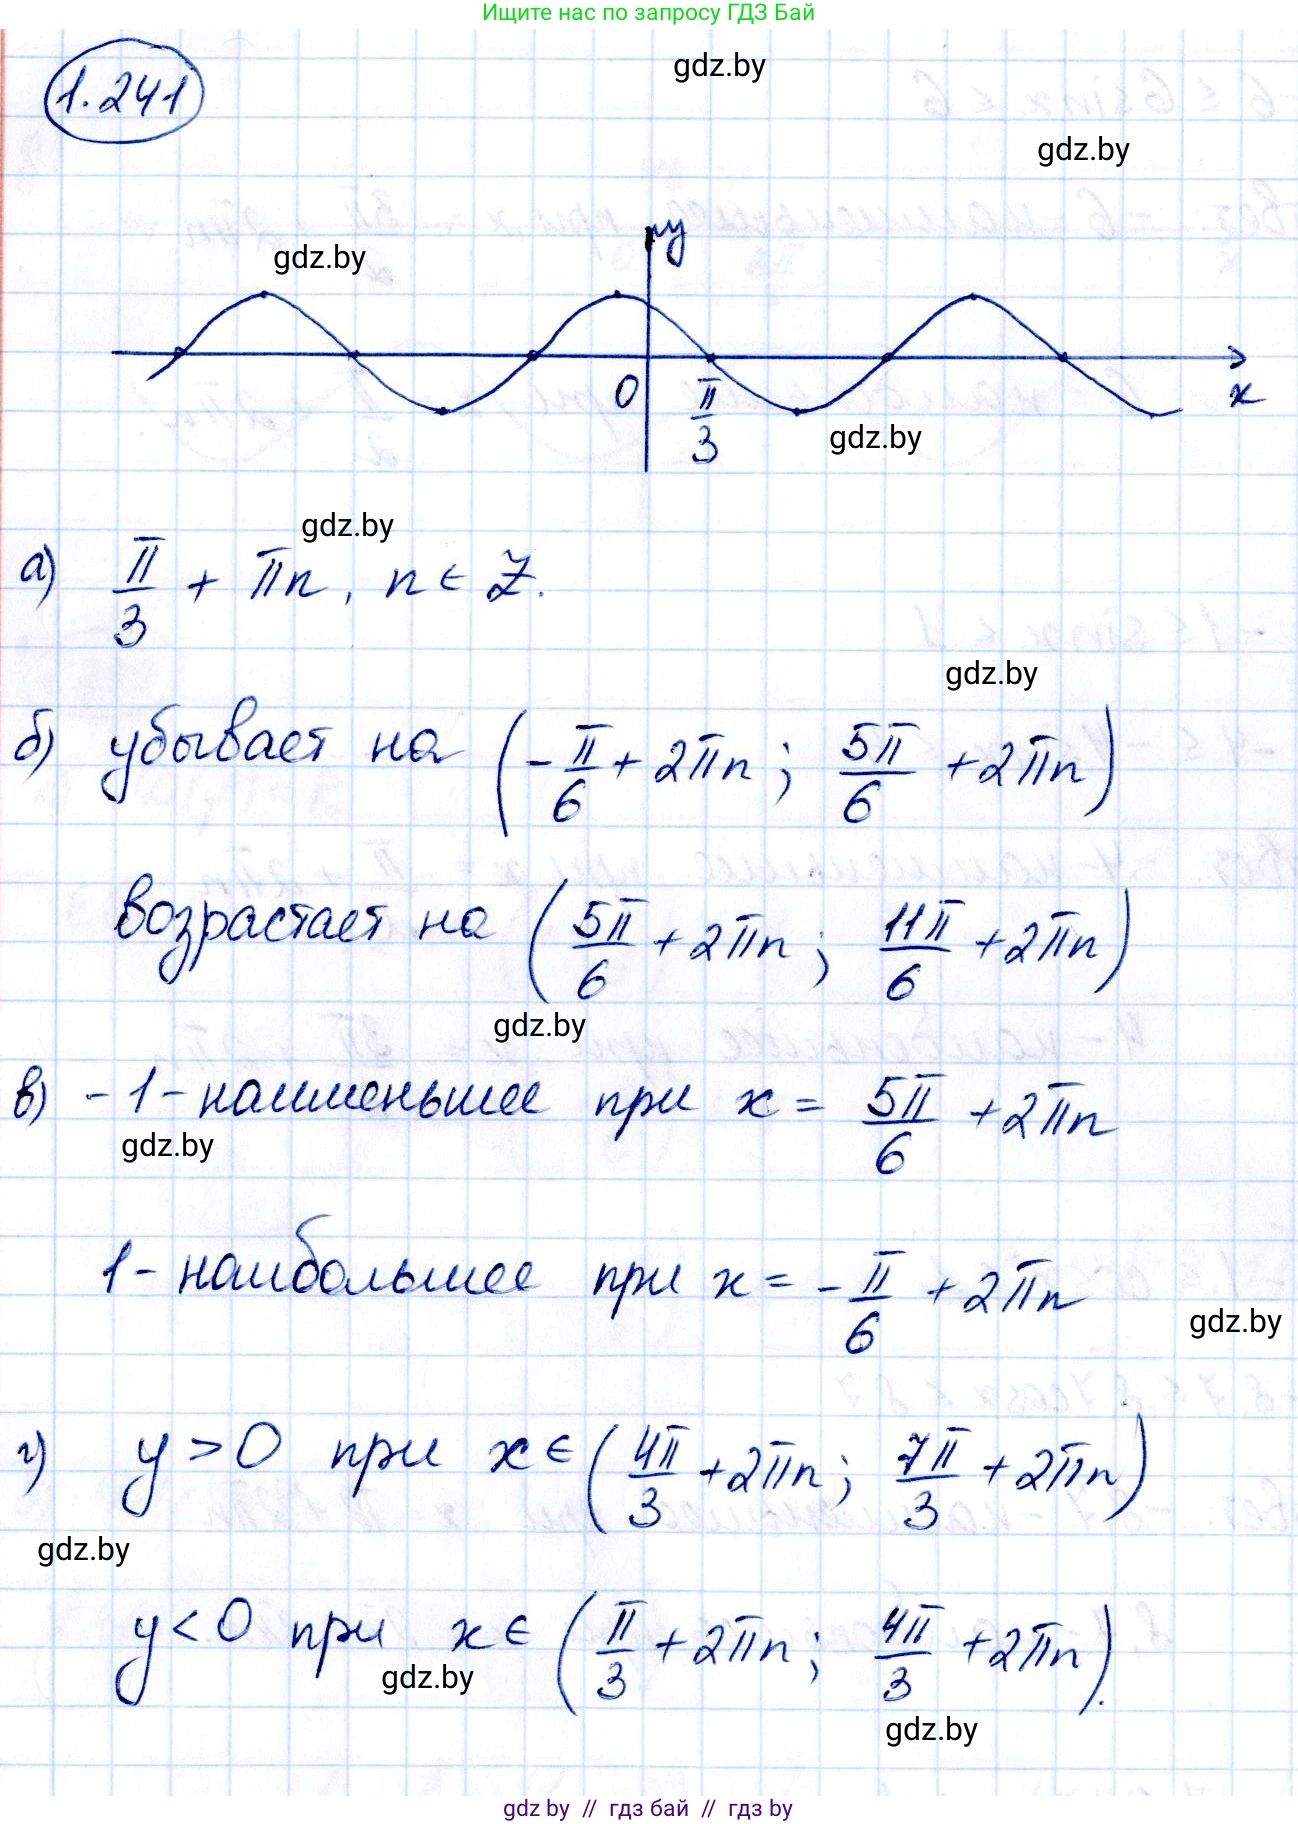 Ищите нас по запросу ГДЗ Бай
1.241
gdz.by
gdz.by
gdz.by
y
0
π/3
x
gdz.by
gdz.by
а) π/3 + πn, n ∈ Z.
gdz.by
б) убывает на (-π/6 + 2πn; 5π/6 + 2πn)
возрастает на (5π/6 + 2πn; 11π/6 + 2πn)
gdz.by
в) -1 - наименьшее при x = 5π/6 + 2πn
gdz.by
1 - наибольшее при x = -π/6 + 2πn
gdz.by
г) y > 0 при x ∈ (4π/3 + 2πn; 7π/3 + 2πn)
gdz.by
y < 0 при x ∈ (π/3 + 2πn; 4π/3 + 2πn).
gdz.by
gdz.by
gdz by // гдз бай // гдз by